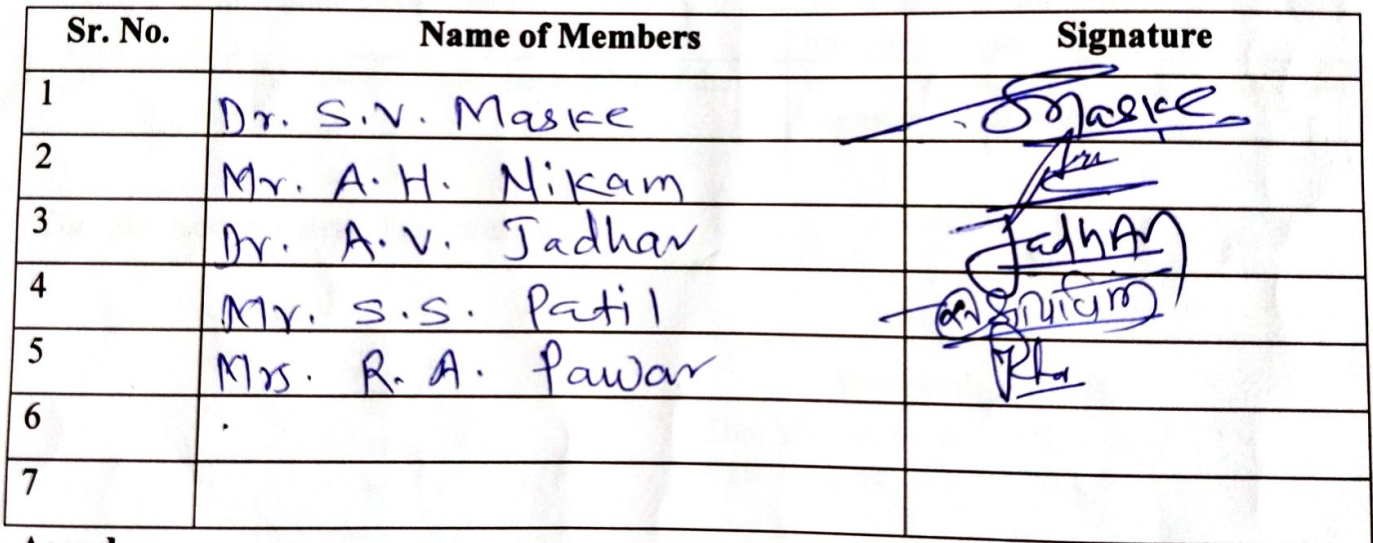 Sr. No. Name of Members Signature
1 Dr. S.V. Maske Smaske
2 Mr. A.H. Nikam
3 Dr. A.V. Jadhav Jadhav
4 Mr. S.S. Patil
5 Mrs. R.A. Pawar
6 .
7